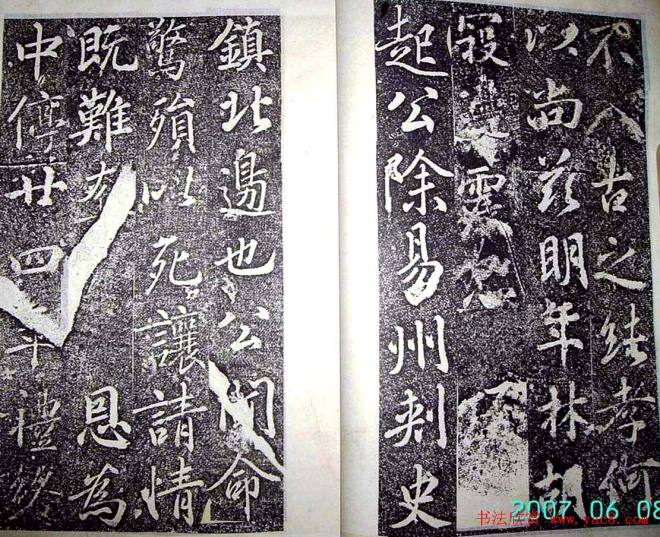 不入古之純孝何
以尚茲明年林胡
寇邊
起公除易州刺史
鎮北邊也公聞命
驚殞以死讓請情
既難奪恩為
中停廿四年禮終
2007 06 08
书法欣赏 www.yac8.com